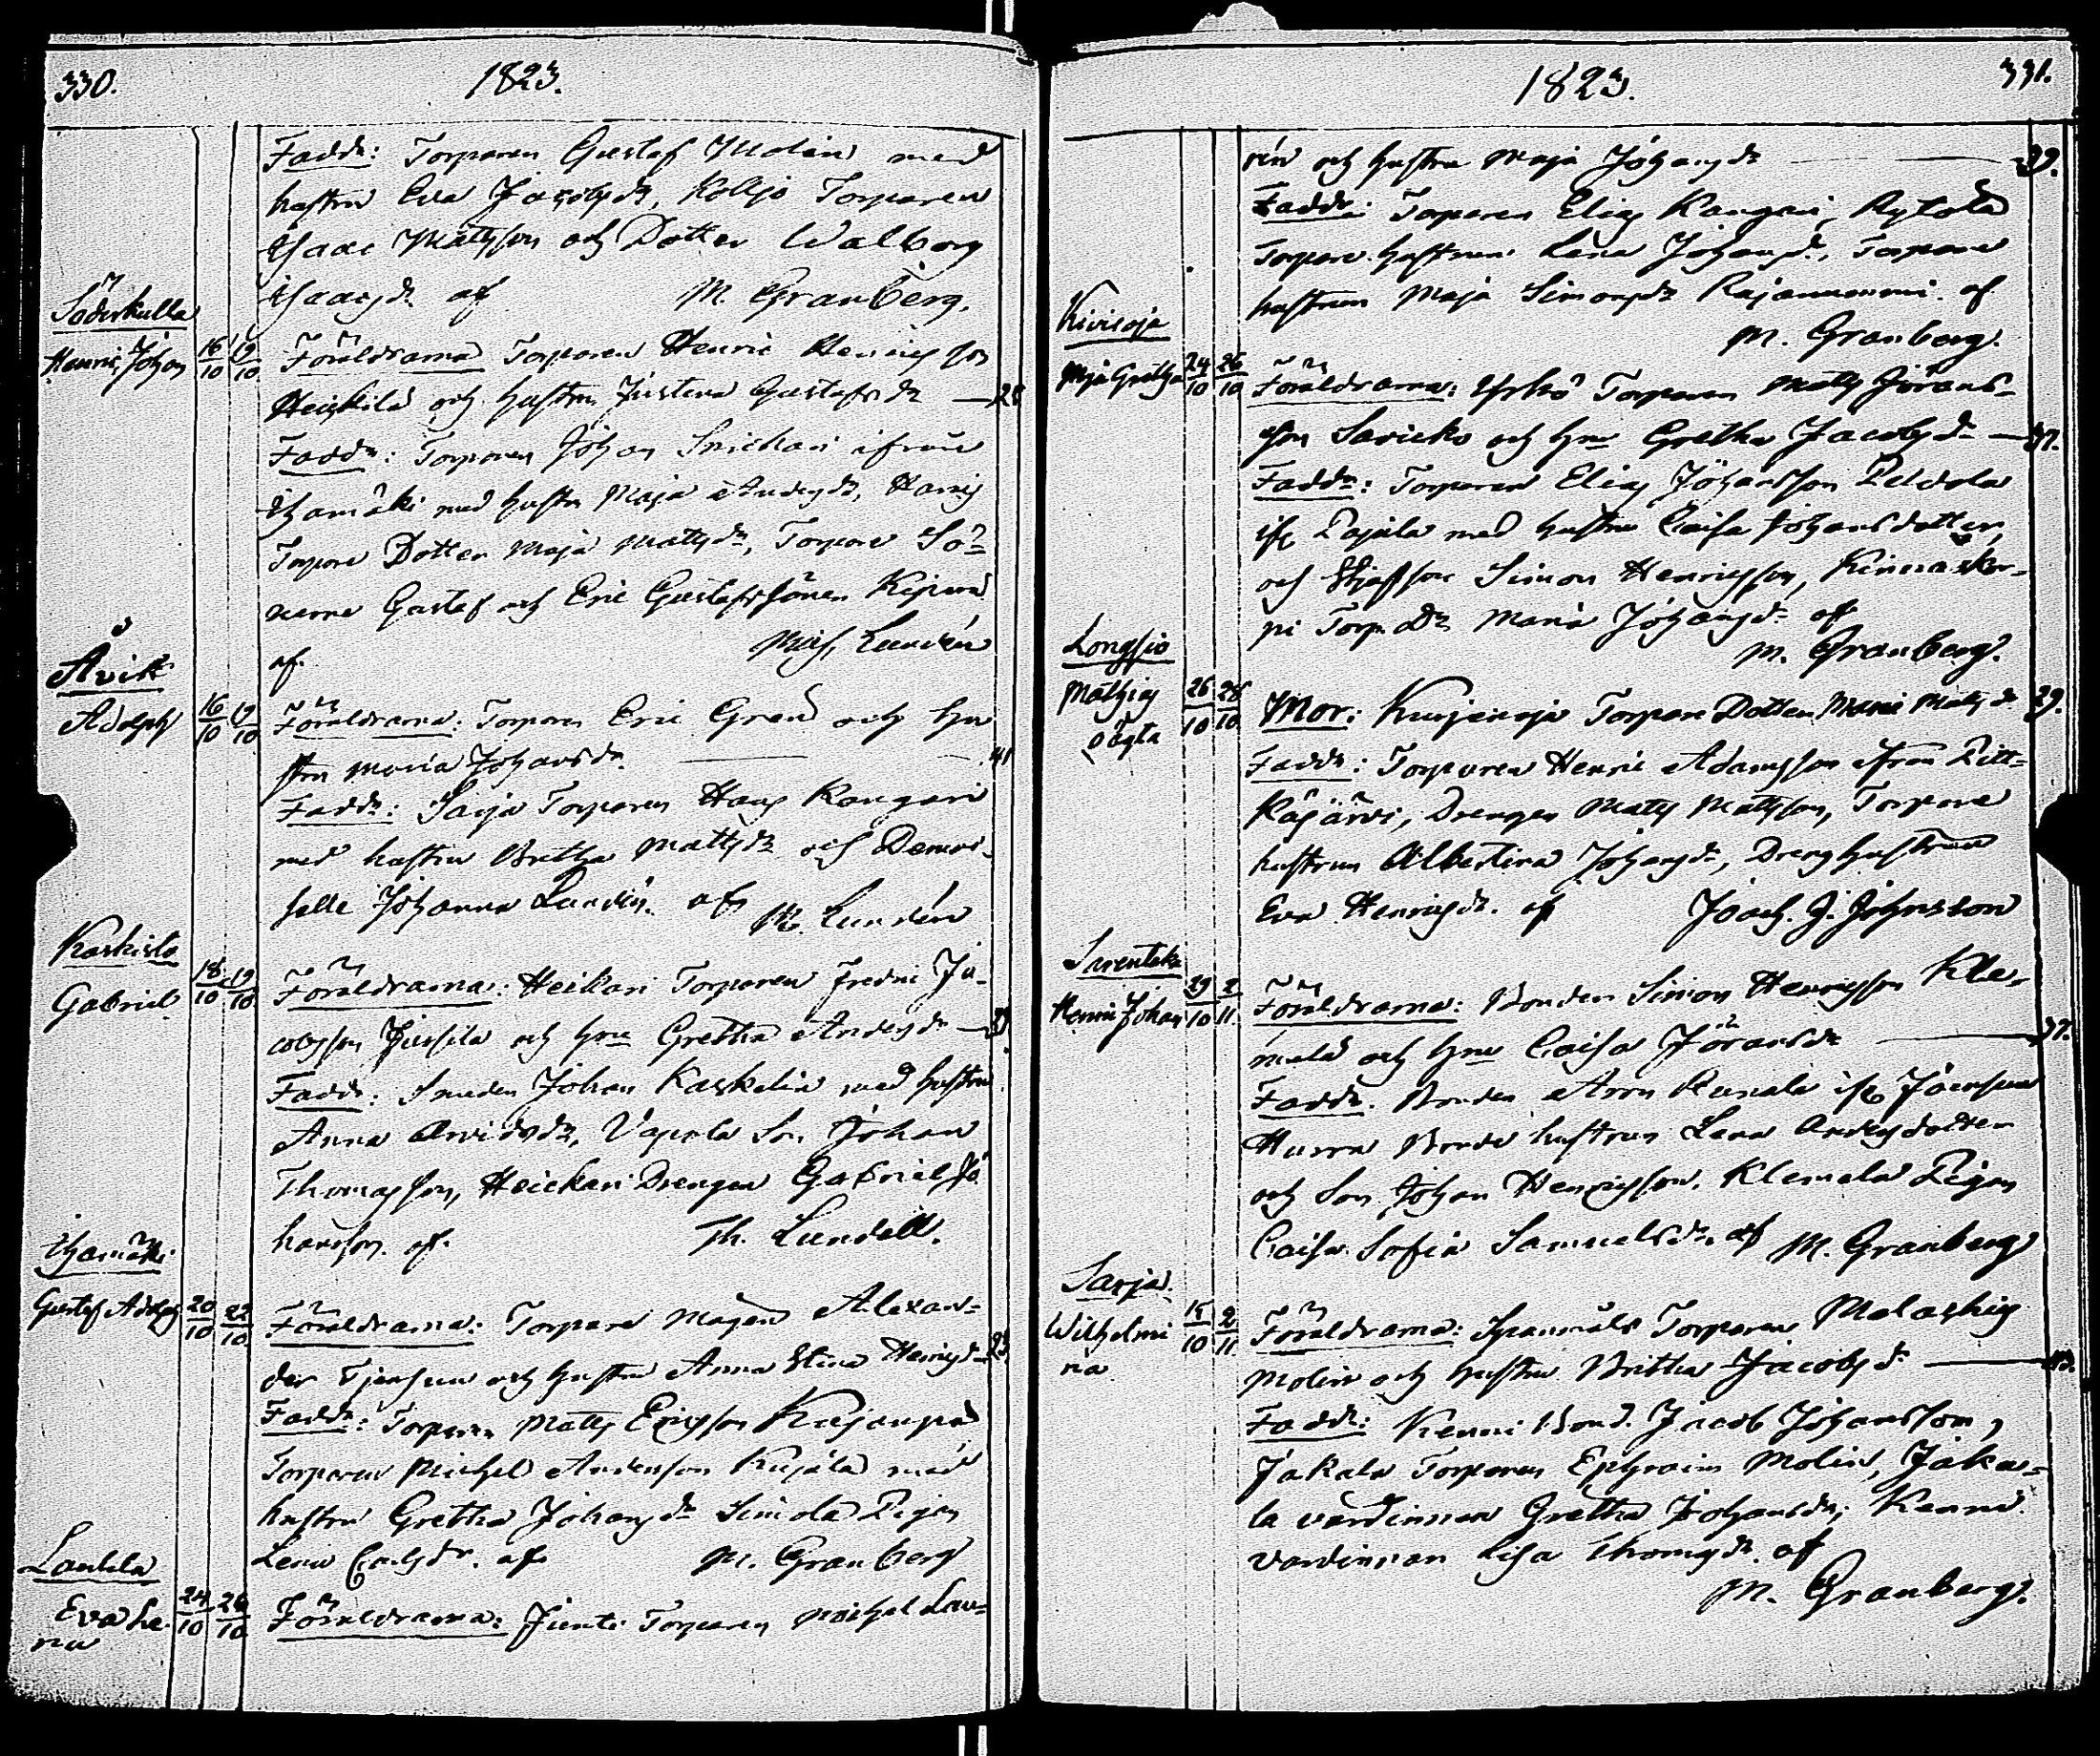 330.
1823.
Fadd:r Torparen Gustaf Molin med
hustru Eva Jacobsdr, Torparen
Isaac Mattsson och Dotter Walborg
Isaacsdr af M. Granberg.
Söderkulla
Henric Johan 16/10 19/10 Föräldrarna Torparen Henric Henricsson
Heickilä och hustru Justina Gustafsdr — 28
Fadd:r Torparen Johan Snickari ifrån
Ihamäki med hustru Maja Andersdr,
Torpare Dotter Maja Mattsdr, Torpare Sö-
nerne Gustaf och Eric Gustafssöner
af Lundén
Åvik
Adolph 16/10 19/10 Föräldrarna: Torparen Eric Gren och hu
stru Maria Johansdr. — 41
Fadd:r: Sarja Torparen Hans Kangari
med hustru Britha Mattsdr och Demoi-
selle Johanna Lundén. af M. Lundén
Kaskisto
Gabriel 18/10 19/10 Föräldrarna: Heikari Torparen Fredric Ja-
cobsson Jussila och hru Gretha Andersdr —
Fadd:r: Smeden Johan Kaskelin med hustru
Anna Arvidsdr, Son Johan
Thomasson, Heickari Drengen Gabriel Jo
hansson. af Th. Lundell.
Ihamäki
Gustaf Adolph 20/10 22/10 Föräldrarna: Torpare Mågen Alexan-
der och hustru Anna Stina Henricsdr 23
Fadd:r: Torparen Matts Ericsson
Torparen Michel Andersson Kujala med
hustru Gretha Johansdr Simola Pigan
Carlsdr. af M. Granberg
Laukila
Eva Le- 24/10 26/10 Föräldrarna: Torparen Michel Lau-
na
331.
1823.
rén och hustru Maja Johansdr — 39.
Fadd:r: Torparen Elias Kangari, Rytölä
Torpare hustrun Lena Johansdr, Torpare
hustrun Maja Simonsdr Rajanummi. af
M. Granberg.
Kivioja
Maja Gretha 24/10 26/10 Föräldrarna: Yrkö Torparen Matts Jörans-
son Savicko och hru Gretha Jacobsdr —
Fadd:r: Torparen Elias Johansson Peldola
ifr. Pajula med hustru Caisa Johansdotter,
och Styfson Simon Henricsson,
pi Torp. dr Maria Johansdr af
M. Granberg.
Longsjö
Mathias 26/10 28/10 Mor: Kurjenoja Torpare Dotter Maria Mattsdr 29.
oägta
Fadd:r: Torparen Henric Adamsson ifrån Pitt-
käjärvi, Drengen Matts Mattsson, Torpare
hustrun Albertina Johansdr, Dreng hustrun
Eva Henricsdr. af Joach. J. Johnsson
Sarentaka
Henric Johan 29/10 2/11. Föräldrarna: Bonden Simon Henricsson Kle-
mala och hru Caisa Jöransdr — 37.
Fadd:r. Bonden Aron ifr. Joensuu
Hurra Bonde hustrun Lena Andersdotter
och Son Johan Henricsson. Klemala Pigan
Caisa Sofia Samuelsdr. af M. Granberg
Sarja
Wilhelmi 15/10 2/11 Föräldrarna: Torparen Malachias
na
Molin och hustru Britha Jacobsdr —
Fadd:r: Kenni Bond. Jacob Johansson,
Jakala Torparen Ephraim Molin, Jaka-
la värdinnan Gretha Johansdr, Kenni
värdinnan Lisa Thomasdr. af
M. Granberg.